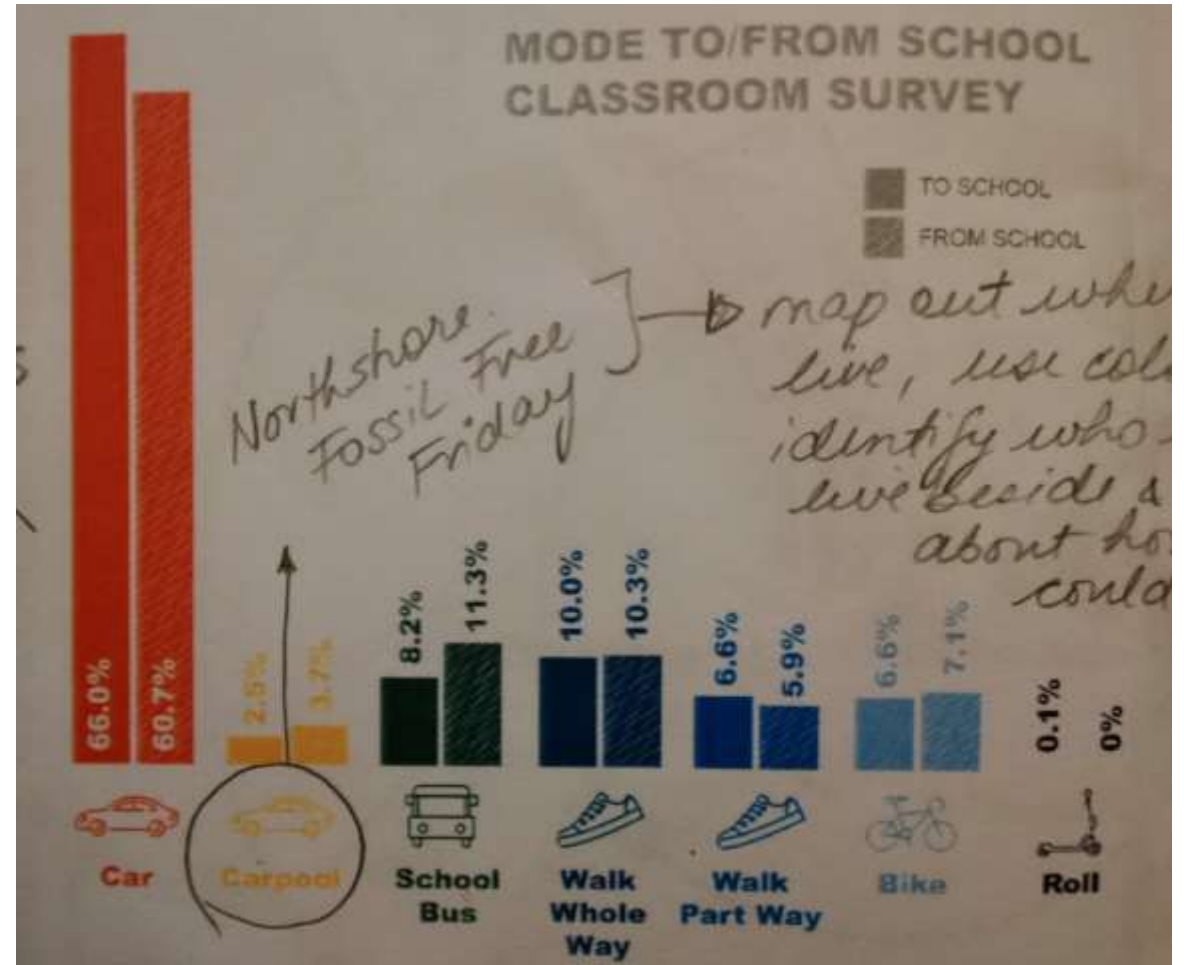 MODE TO/FROM SCHOOL
CLASSROOM SURVEY
TO SCHOOL
FROM SCHOOL
Northshore
Fossil Free
Friday
map out whe
live, use col
identify who
live beside &
about ho
could
66.0%
60.7%
2.5%
3.7%
8.2%
11.3%
10.0%
10.3%
6.6%
5.9%
6.6%
7.1%
0.1%
0%
Car
Carpool
School
Bus
Walk
Whole
Way
Walk
Part Way
Bike
Roll